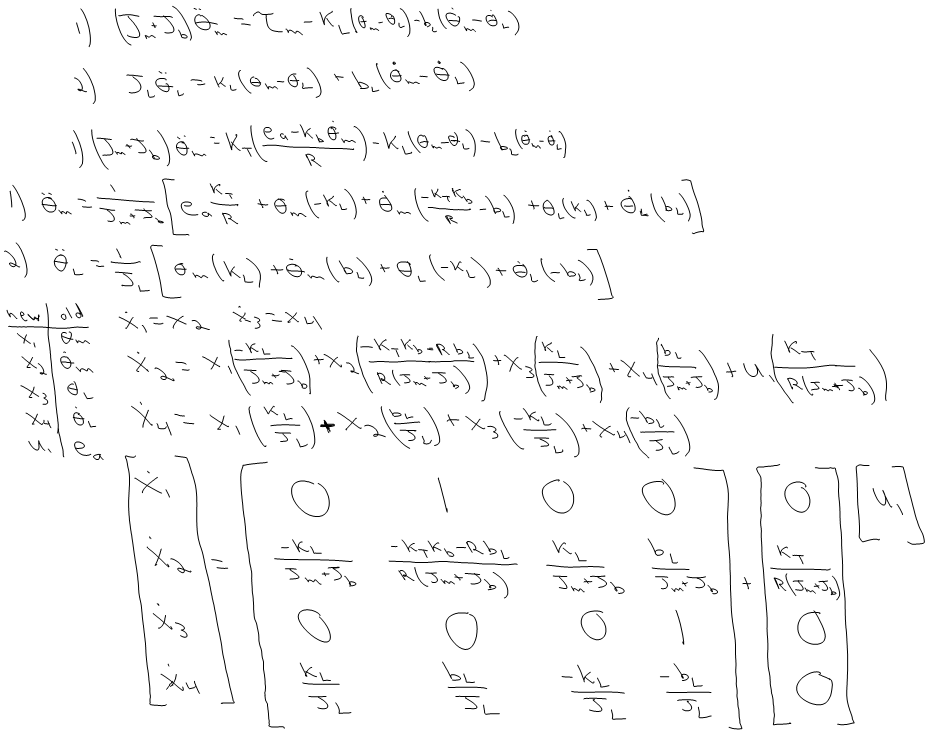 1) (J_m+J_b)θ̈_m = τ_m - K_L(θ_m-θ_L)-b_L(θ̇_m-θ̇_L)
2) J_Lθ̈_L = K_L(θ_m-θ_L) + b_L(θ̇_m-θ̇_L)
1) (J_m+J_b)θ̈_m = K_T((e_a-K_bθ̇_m)/R) - K_L(θ_m-θ_L) - b_L(θ̇_m-θ̇_L)
1) θ̈_m = 1/(J_m+J_b) [e_a K_T/R + θ_m(-K_L) + θ̇_m(-K_TK_b/R - b_L) + θ_L(K_L) + θ̇_L(b_L)]
2) θ̈_L = 1/J_L [θ_m(K_L) + θ̇_m(b_L) + θ_L(-K_L) + θ̇_L(-b_L)]
new | old
x_1 | θ_m
x_2 | θ̇_m
x_3 | θ_L
x_4 | θ̇_L
u_1 | e_a
ẋ_1 = x_2 ẋ_3 = x_4
ẋ_2 = x_1(-K_L/(J_m+J_b)) + x_2((-K_TK_b-Rb_L)/(R(J_m+J_b))) + x_3(K_L/(J_m+J_b)) + x_4(b_L/(J_m+J_b)) + u_1(K_T/(R(J_m+J_b)))
ẋ_4 = x_1(K_L/J_L) + x_2(b_L/J_L) + x_3(-K_L/J_L) + x_4(-b_L/J_L)
[ẋ_1] [0 1 0 0] [0] [u_1]
[ẋ_2] = [-K_L/(J_m+J_b) (-K_TK_b-Rb_L)/(R(J_m+J_b)) K_L/(J_m+J_b) b_L/(J_m+J_b)] + [K_T/(R(J_m+J_b))]
[ẋ_3] [0 0 0 1] [0]
[ẋ_4] [K_L/J_L b_L/J_L -K_L/J_L -b_L/J_L] [0]